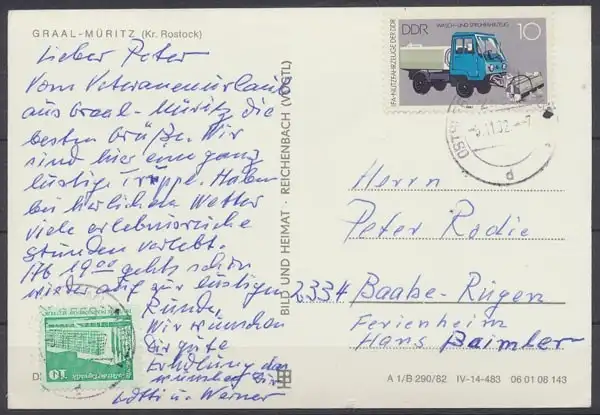 GRAAL-MÜRITZ (Kr. Rostock)
Lieber Peter
Vom Veteranenurlaub
aus Graal-Müritz die
besten Grüße. Wir
sind hier eine ganz
lustige Truppe. Haben
bei herrlichem Wetter
viele erlebnisreiche
Stunden verlebt.
19 00 gehts schon
wieder auf zur lustigen
Runde.
Wir wünschen
Dir gute
Erholung, das
wünschen Dir
Lotti u. Werner
BILD UND HEIMAT · REICHENBACH (VOGTL)
DDR
WASCH- UND SPRÜHFAHRZEUG
10
IFA-NUTZFAHRZEUGE DER DDR
OSTSE
-5.11.82-7
d
Herrn
Peter Rodie
2334 Baabe-Rügen
Ferienheim
Hans Baimler
10
A 1/B 290/82 IV-14-483 06 01 08 143